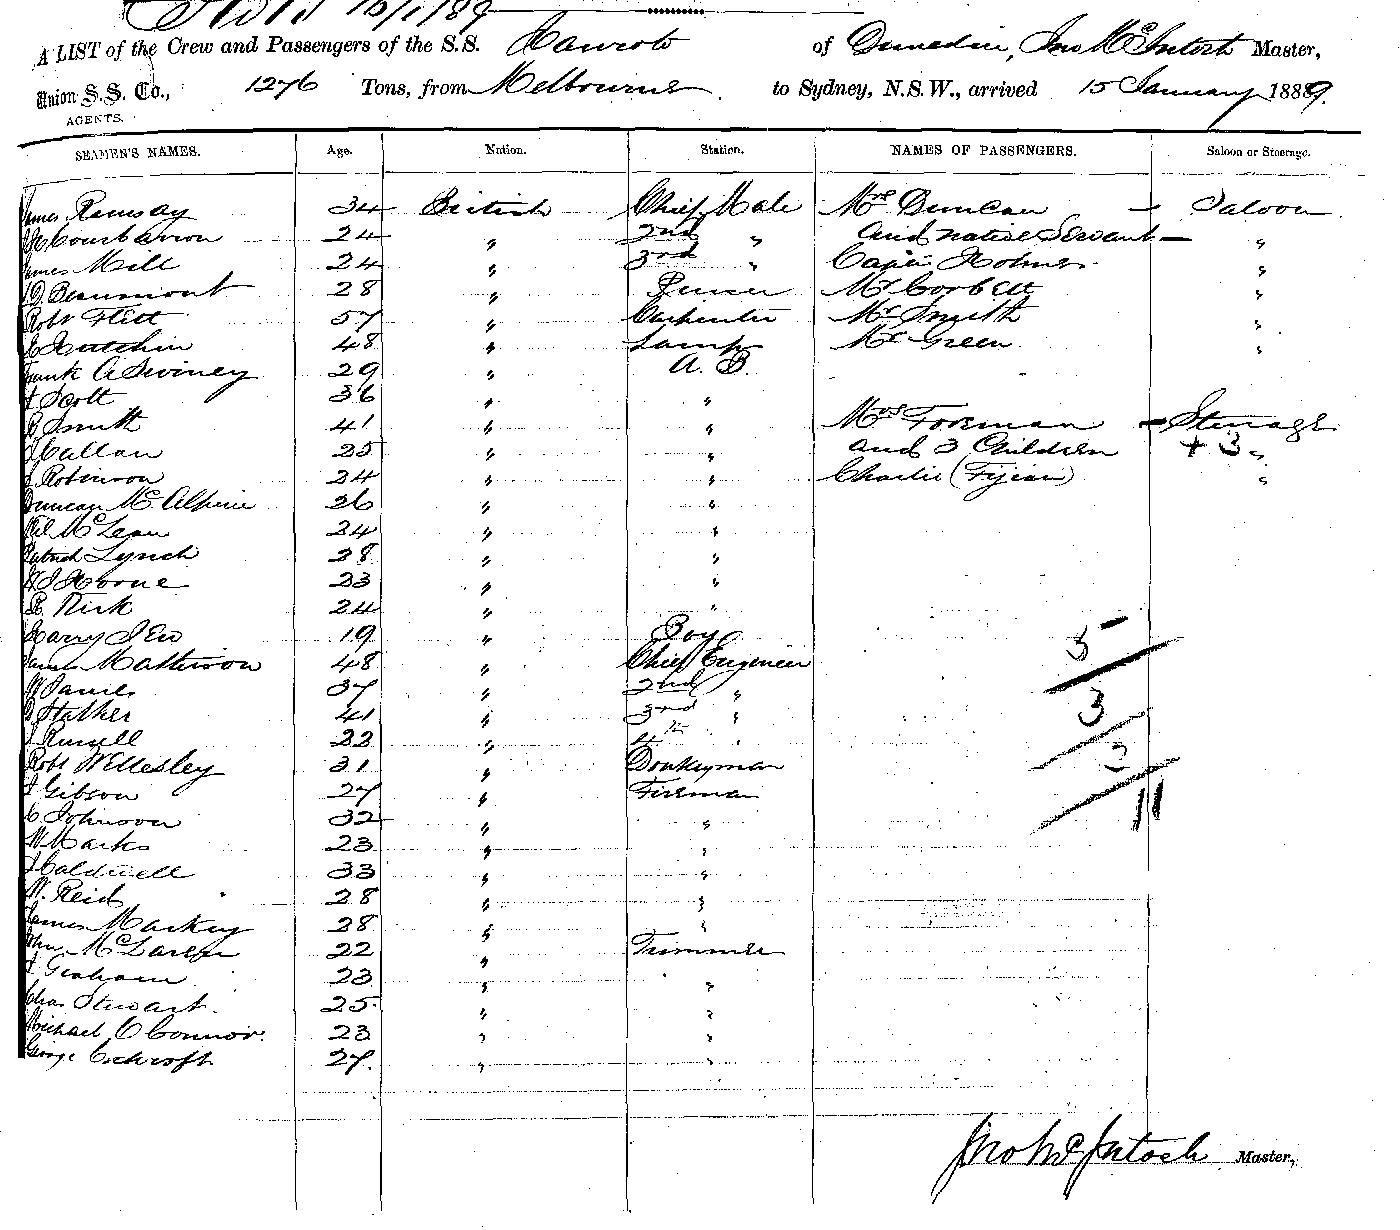 15/1/89
A LIST of the Crew and Passengers of the S.S. Hauroto of Dunedin, Jno McIntosh Master,
Union S. S. Co., 1276 Tons, from Melbourne to Sydney, N.S.W., arrived 15 January 1889.
AGENTS.
SEAMEN'S NAMES. Age. Nation. Station. NAMES OF PASSENGERS. Saloon or Steerage.
James Ramsay 34 British Chief Mate Mrs Duncan — Saloon
24 " 2nd " and native Servant — "
James Mill 24 " 3rd " Capt Holmes "
Beaumont 28 " Purser Mr Corbett "
Robt Flett 57 " Carpenter Mr Smith "
Hutchin 48 " Lamps Mr Green "
Frank A Swiney 29 " A. B.
Scott 36 " "
Smith 41 " " Mrs Foreman — Steerage
Callan 25 " " and 3 Children + 3 "
Robinson 24 " " Charlie (Fijian) "
Duncan McAlpine 26 " "
Neil McLean 24 " "
Patrick Lynch 28 " "
Horne 23 " "
Kirk 24 " "
Harry 19 " Boy
James Mathieson 48 " Chief Engineer
37 " 2nd "
Stather 41 " 3rd "
Russell 22 " 4th "
Robt Wellesley 31 " Donkeyman
Gibson 27 " Fireman
Johnson 32 " "
W Marks 23 " "
Caldwell 33 " "
W. Reid 28 " "
James Markey 28 " "
John McLaren 22 " Trimmer
Graham 23 " "
Chas Stewart. 25 " "
Michael O'Connor. 23 " "
George Cockroft 27. " "
5
3
3
11
Jno McIntosh Master,